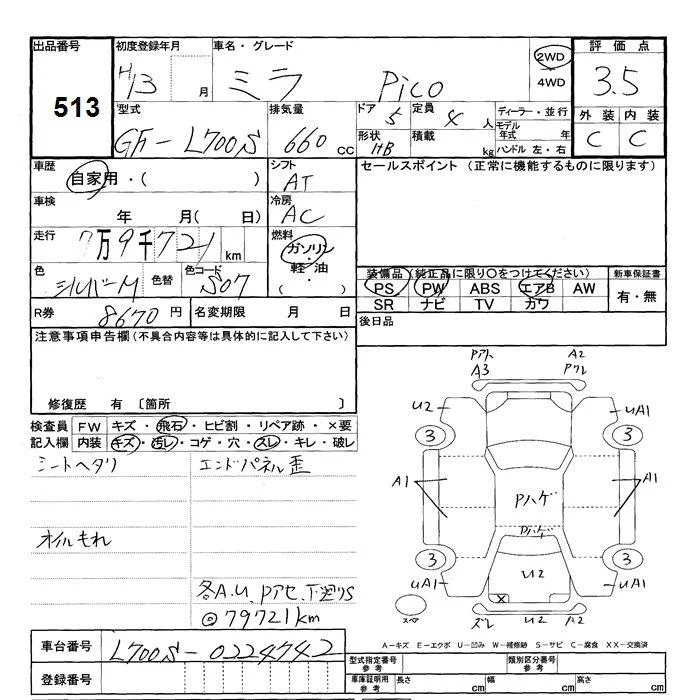 出品番号 初度登録年月 車名・グレード 評価点
513 H13 月 ミラ Pico 2WD 4WD 3.5
型式 排気量 ドア 5 定員 4 人 ディーラー・並行 外装 内装
GF-L700S 660 CC 形状 HB 積載 kg モデル年式 年 ハンドル 左・右 C C
車歴 自家用・( ) シフト AT セールスポイント (正常に機能するものに限ります)
車検 年 月( 日) 冷房 AC
走行 7万9千721 km 燃料 ガソリン・軽油・( )
色 シルバーM 色替 色コード S07 装備品(純正品に限り○をつけてください) 新車保証書
PS PW ABS エアB AW 有・無
SR ナビ TV カワ
R券 8670 円 名変期限 月 日 後日品
注意事項申告欄(不具合内容等は具体的に記入して下さい)
修復歴 有 〔箇所 〕
検査員記入欄 FW キズ・飛石・ヒビ割・リペア跡・×要
内装 キズ・汚レ・コゲ・穴・スレ・キレ・破レ
シートヘタリ エンドパネル歪
オイルもれ
各A.U.Pアセ.下廻りS
◎79721km
Pアト A2
A3 Pクレ
U2 UA1
3 3
A1 A1
Pハゲ
Pハゲ
3 3
U2
UA1 X UA1
スペア ズレ U2 A2
A-キズ E-エクボ U-凹み W-補修跡 S-サビ C-腐食 XX-交換済
車台番号 L700S-0224742
登録番号
型式指定番号 参考 類別区分番号 参考
車庫証明用 参考 長さ cm 幅 cm 高さ cm